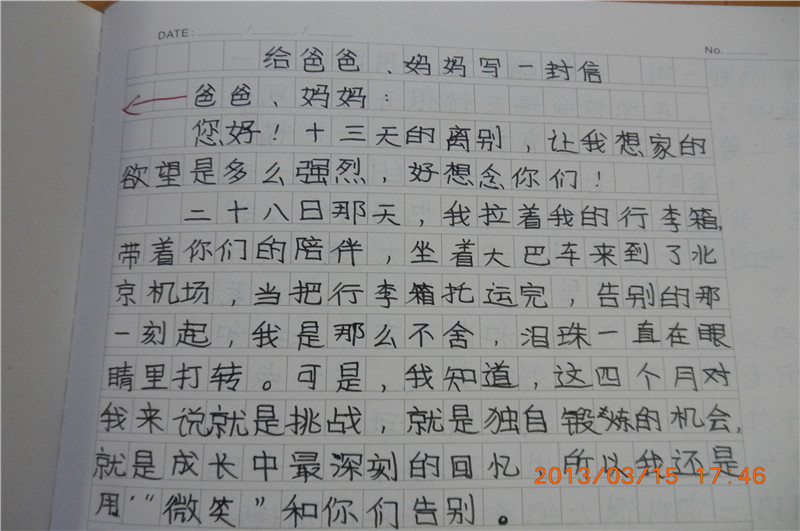 DATE: / /
No.
给爸爸、妈妈写一封信
爸爸、妈妈：
您好！十三天的离别，让我想家的
欲望是多么强烈，好想念你们！
二十八日那天，我拉着我的行李箱，
带着你们的陪伴，坐着大巴车来到了北
京机场，当把行李箱托运完，告别的那
一刻起，我是那么不舍，泪珠一直在眼
睛里打转。可是，我知道，这四个月对
我来说就是挑战，就是独自锻炼的机会，
就是成长中最深刻的回忆，所以我还是
用“微笑”和你们告别。
2013/03/15 17:46